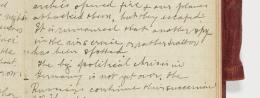 archies opened fire & our planes
attacked them, but they escaped
It is rumoured that another spy
in the air service, on other
has been spotted.
The big political crisis in
Germany is not yet over, the
Russians continue their successes